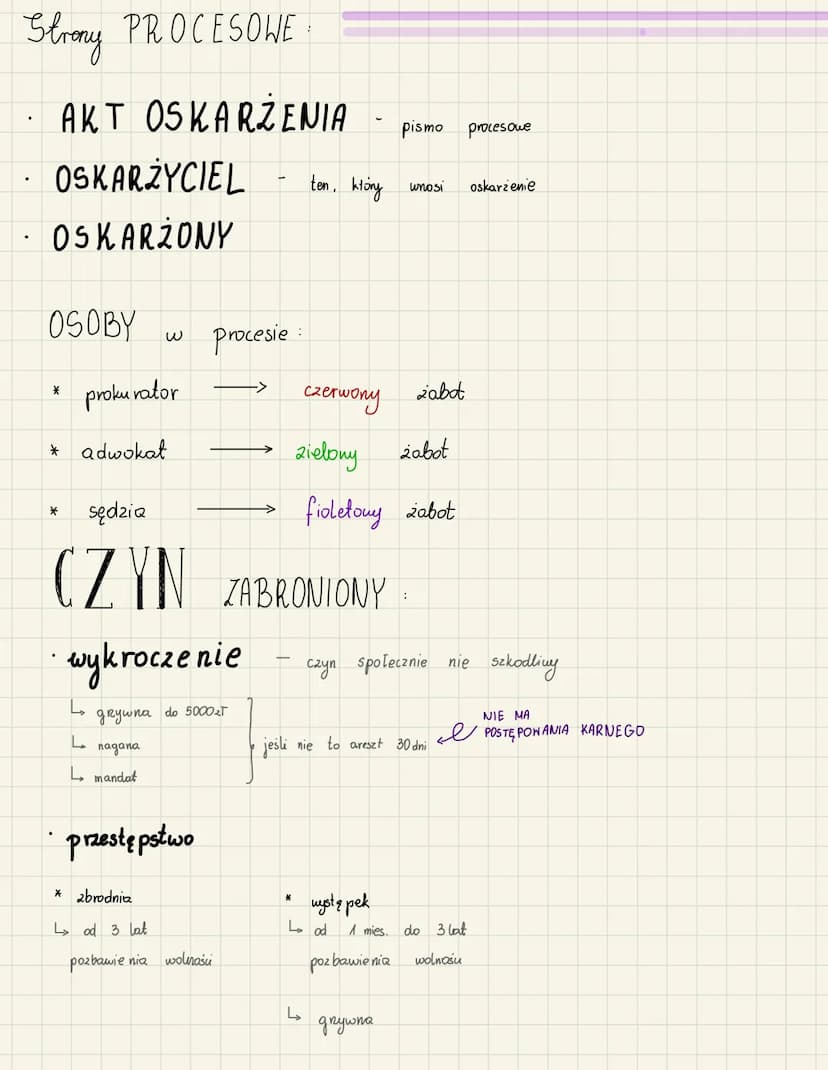 Strony PROCESOWE :
· AKT OSKARŻENIA - pismo procesowe
· OSKARŻYCIEL - ten, który wnosi oskarżenie
· OSKARŻONY
OSOBY w procesie :
* prokurator → czerwony żabot
* adwokat → zielony żabot
* sędzia → fioletowy żabot
CZYN ZABRONIONY :
· wykroczenie - czyn społecznie nie szkodliwy
↳ grzywna do 5000zł
↳ nagana
↳ mandat
jeśli nie to areszt 30 dni
NIE MA
POSTĘPOWANIA KARNEGO
· przestępstwo
* zbrodnia
↳ od 3 lat
pozbawienia wolności
* występek
↳ od 1 mies. do 3 lat
pozbawienia wolności
↳ grzywna